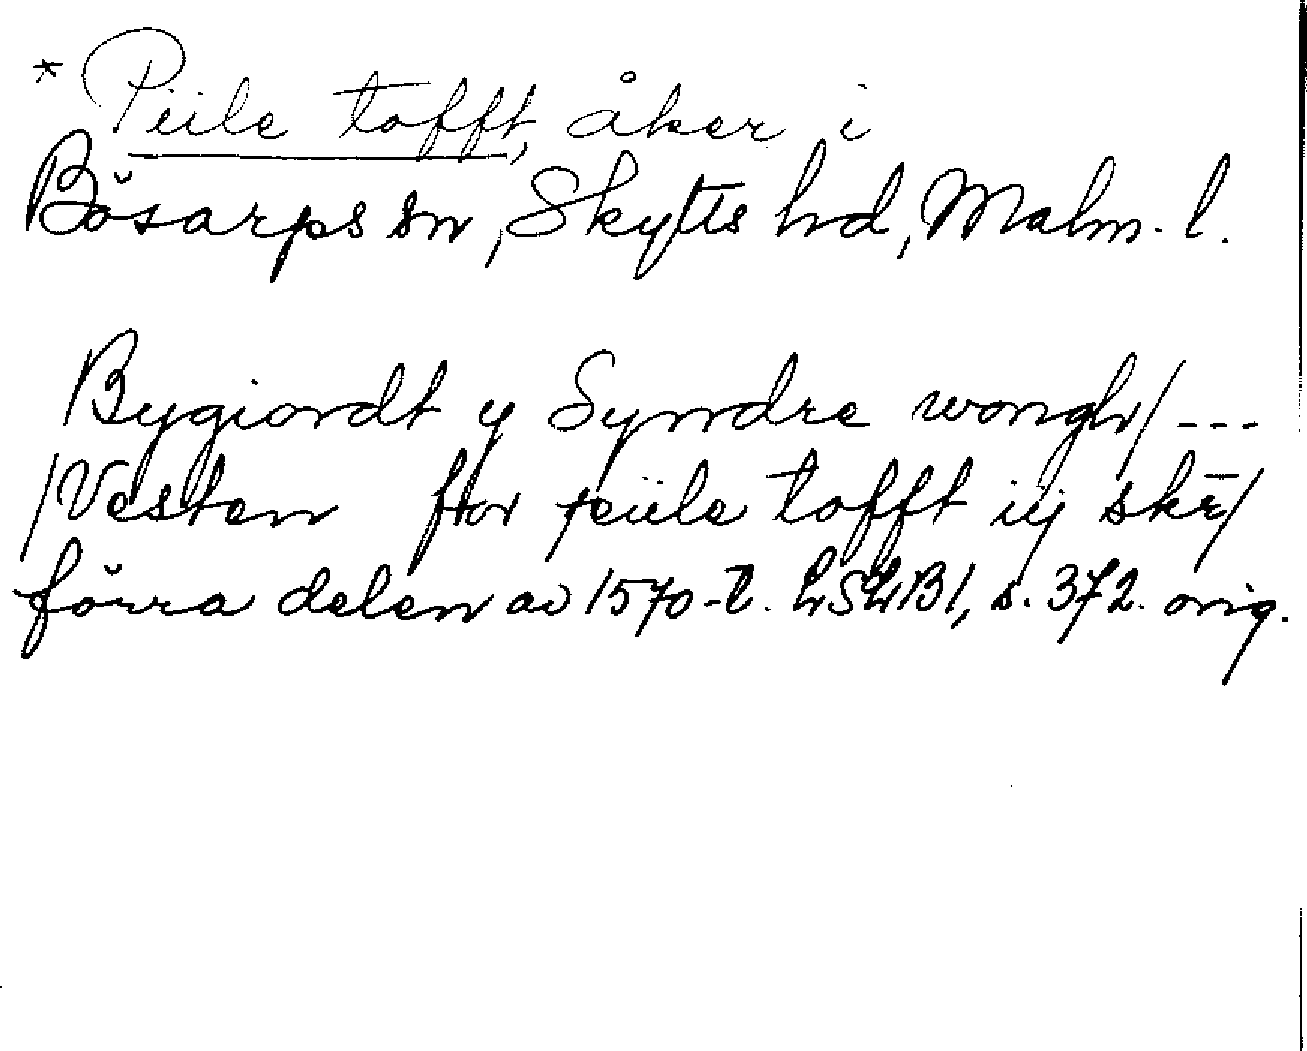 * Piile tofft, åker i
Bösarps sn, Skytts hd, Malm. l.
Bygiordt y Syndre wongh/ ---
/Vesten for piile tofft iij skr̄/
förra delen av 1570-t. LSLB1, s. 372. orig.